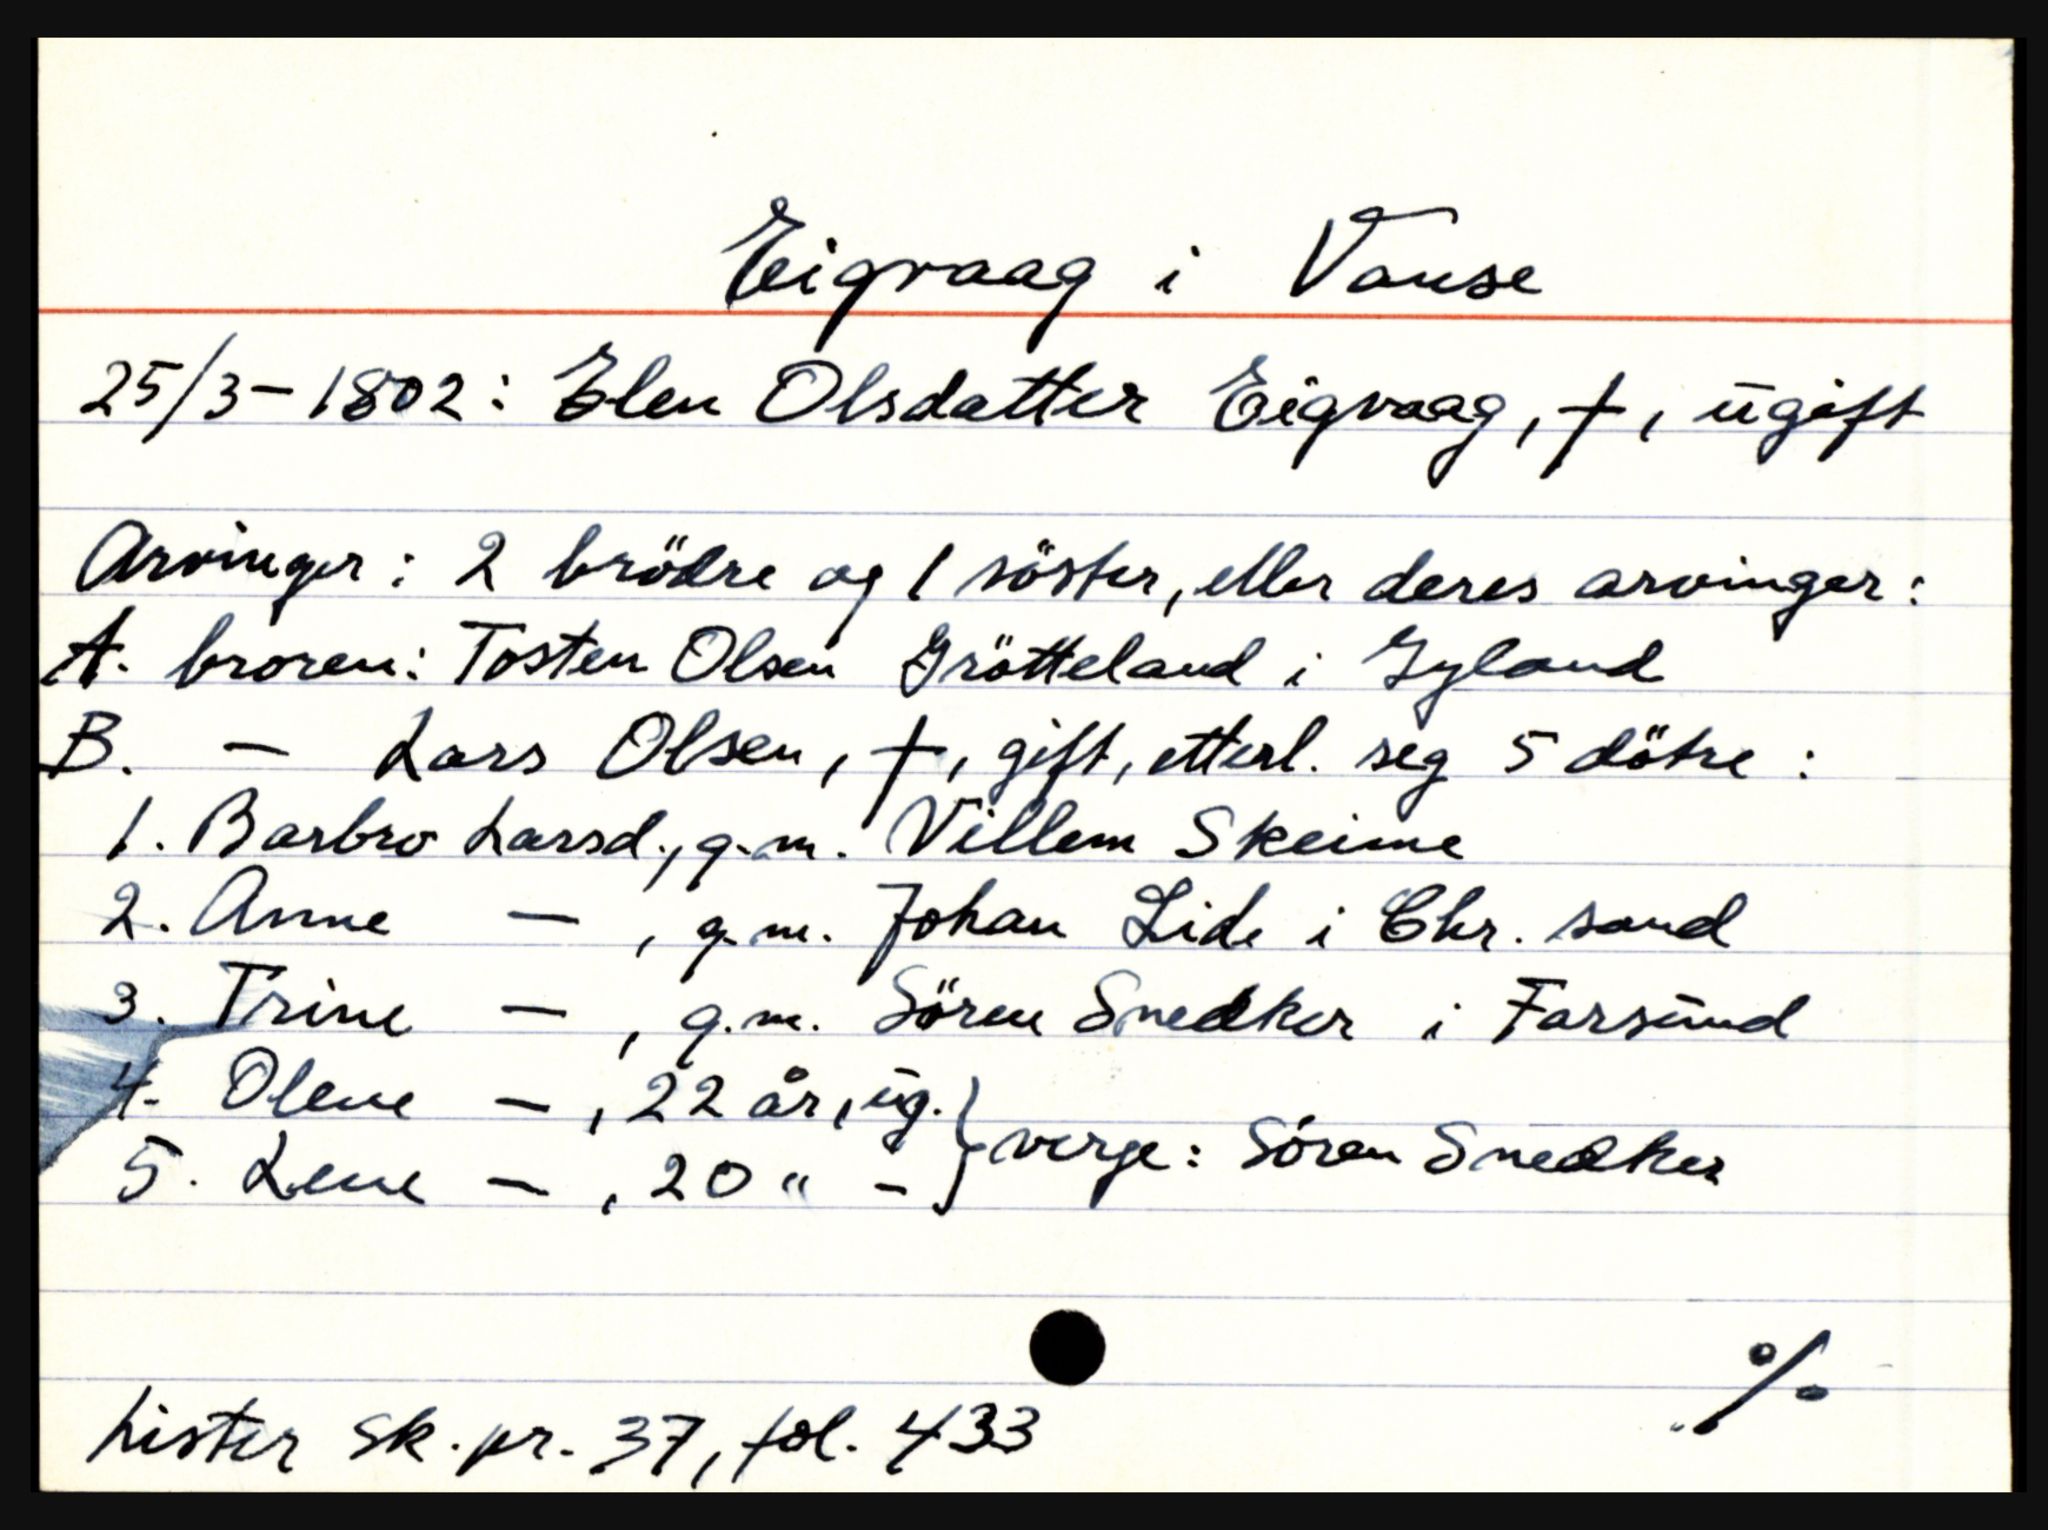 Eigvaag i Vanse
25/3-1802: Elen Olsdatter Eigvaag, †, ūgift
Arvinger: 2 brödre og 1 söster, eller deres arvinger:
A. broren: Tosten Olsen Grötteland i Gyland
B. — Lars Olsen, †, gift, etterl. seg 5 dötre:
1. Barbro Larsd., g.m. Villem Skeime
2. Anne — , g.m. Johan Lide i Chr. sand
3. Trine — , g.m. Sören Snedker i Farsūnd
4. Olene — , 22 år, ūg. } verge: Sören Snedker
5. Lene — , 20 " - }
Lister sk. pr. 37, fol. 433
%